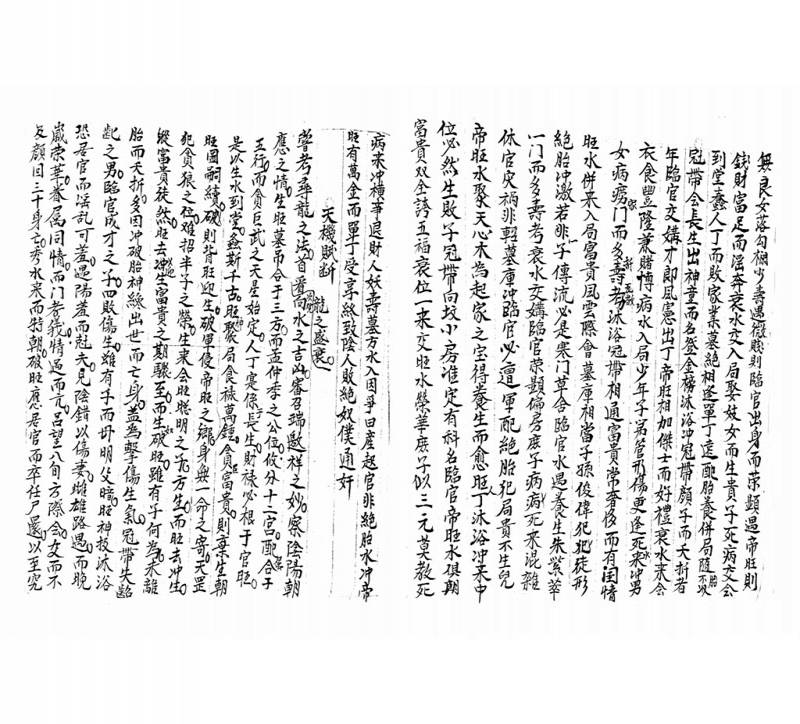 無良女落勾欄少壽遇微賤則臨官出身而榮顯遇帝旺則
錢財富足而淫奔衰水交入局娶妓女而生貴子死病交会
到堂螽人丁而敗家業墓絕相逢單丁遠配胎養併局隨胎不收
冠帶会長生出神童而名登金榜沐浴冲冠帶顏子而夭折者
年臨官交媾才郎風憲出丁帝旺相加傑士而好禮衰水來会
衣食豐隆兼賭博病水入局少年子弟管形傷更逢死來冲男
女病癆門而多壽考沐浴冠帶相通富貴常奢侈而有閨情
旺水併來入局富貴風雲際會墓庫相當子孫俊偉犯犯徒形
絕胎冲激若非子傳流必是寒門草舍臨官水遇養生朱紫萃
一門而多壽考衰水交媾臨官榮顯偏房庶子病病死來混雜
休官災禍非輕墓庫沖臨官必遭軍配絕胎犯局貴不生兒
帝旺水聚天心木為起家之宝得養生而愈旺丁沐浴冲柔中
位必然生敗子冠帶向坟小房准定有科名臨官帝旺水俱期
富貴双全誇五福衰位一來交旺水榮華庶子以三元莫教死
病來冲橫事退財人妖壽墓方水入因爭田產起官非絕胎水冲帝
旺有萬金而單丁受享終致陰人敗絕奴僕通奸
天機賦斷
嘗考尋龍之法首著龍之盛衰向水之吉凶審召瑞邀祥之妙察陰陽朝
應之情生旺墓吊合于三方而孟仲季之公位攸分十二宮配合于
五行而貪巨武之天星始定人丁寔係長生財祿必根于官旺
是以生水到堂螽斯千古旺聚局食祿萬鍾貪富貴則棄生朝
旺圖嗣續則背旺迎生破軍侵帝旺之鄉身無一命之寄天罡
犯貪狼之位难招半子之榮生來会旺聰明之子方生而旺去冲生
縱富貴徒然旺去迎生富貴之期驟至而生破旺雖有子何為未離
胎而夭折多因冲破胎神繞出世而亡身盖為擊傷生氣冠帶失
齔之男臨官成才之子四敗傷生雖有子而毌明父暗旺神投沐浴
恐居官而淫乱可羞遇陽羞而尅夫見陰錯以傷妻雌雄路遇而晚
歲榮華眷属同情而門眷我情過而亢呂望八旬方際会交而不
及顏回三十身亡秀水來而特朝破旺應居官而卒任尸還以至究